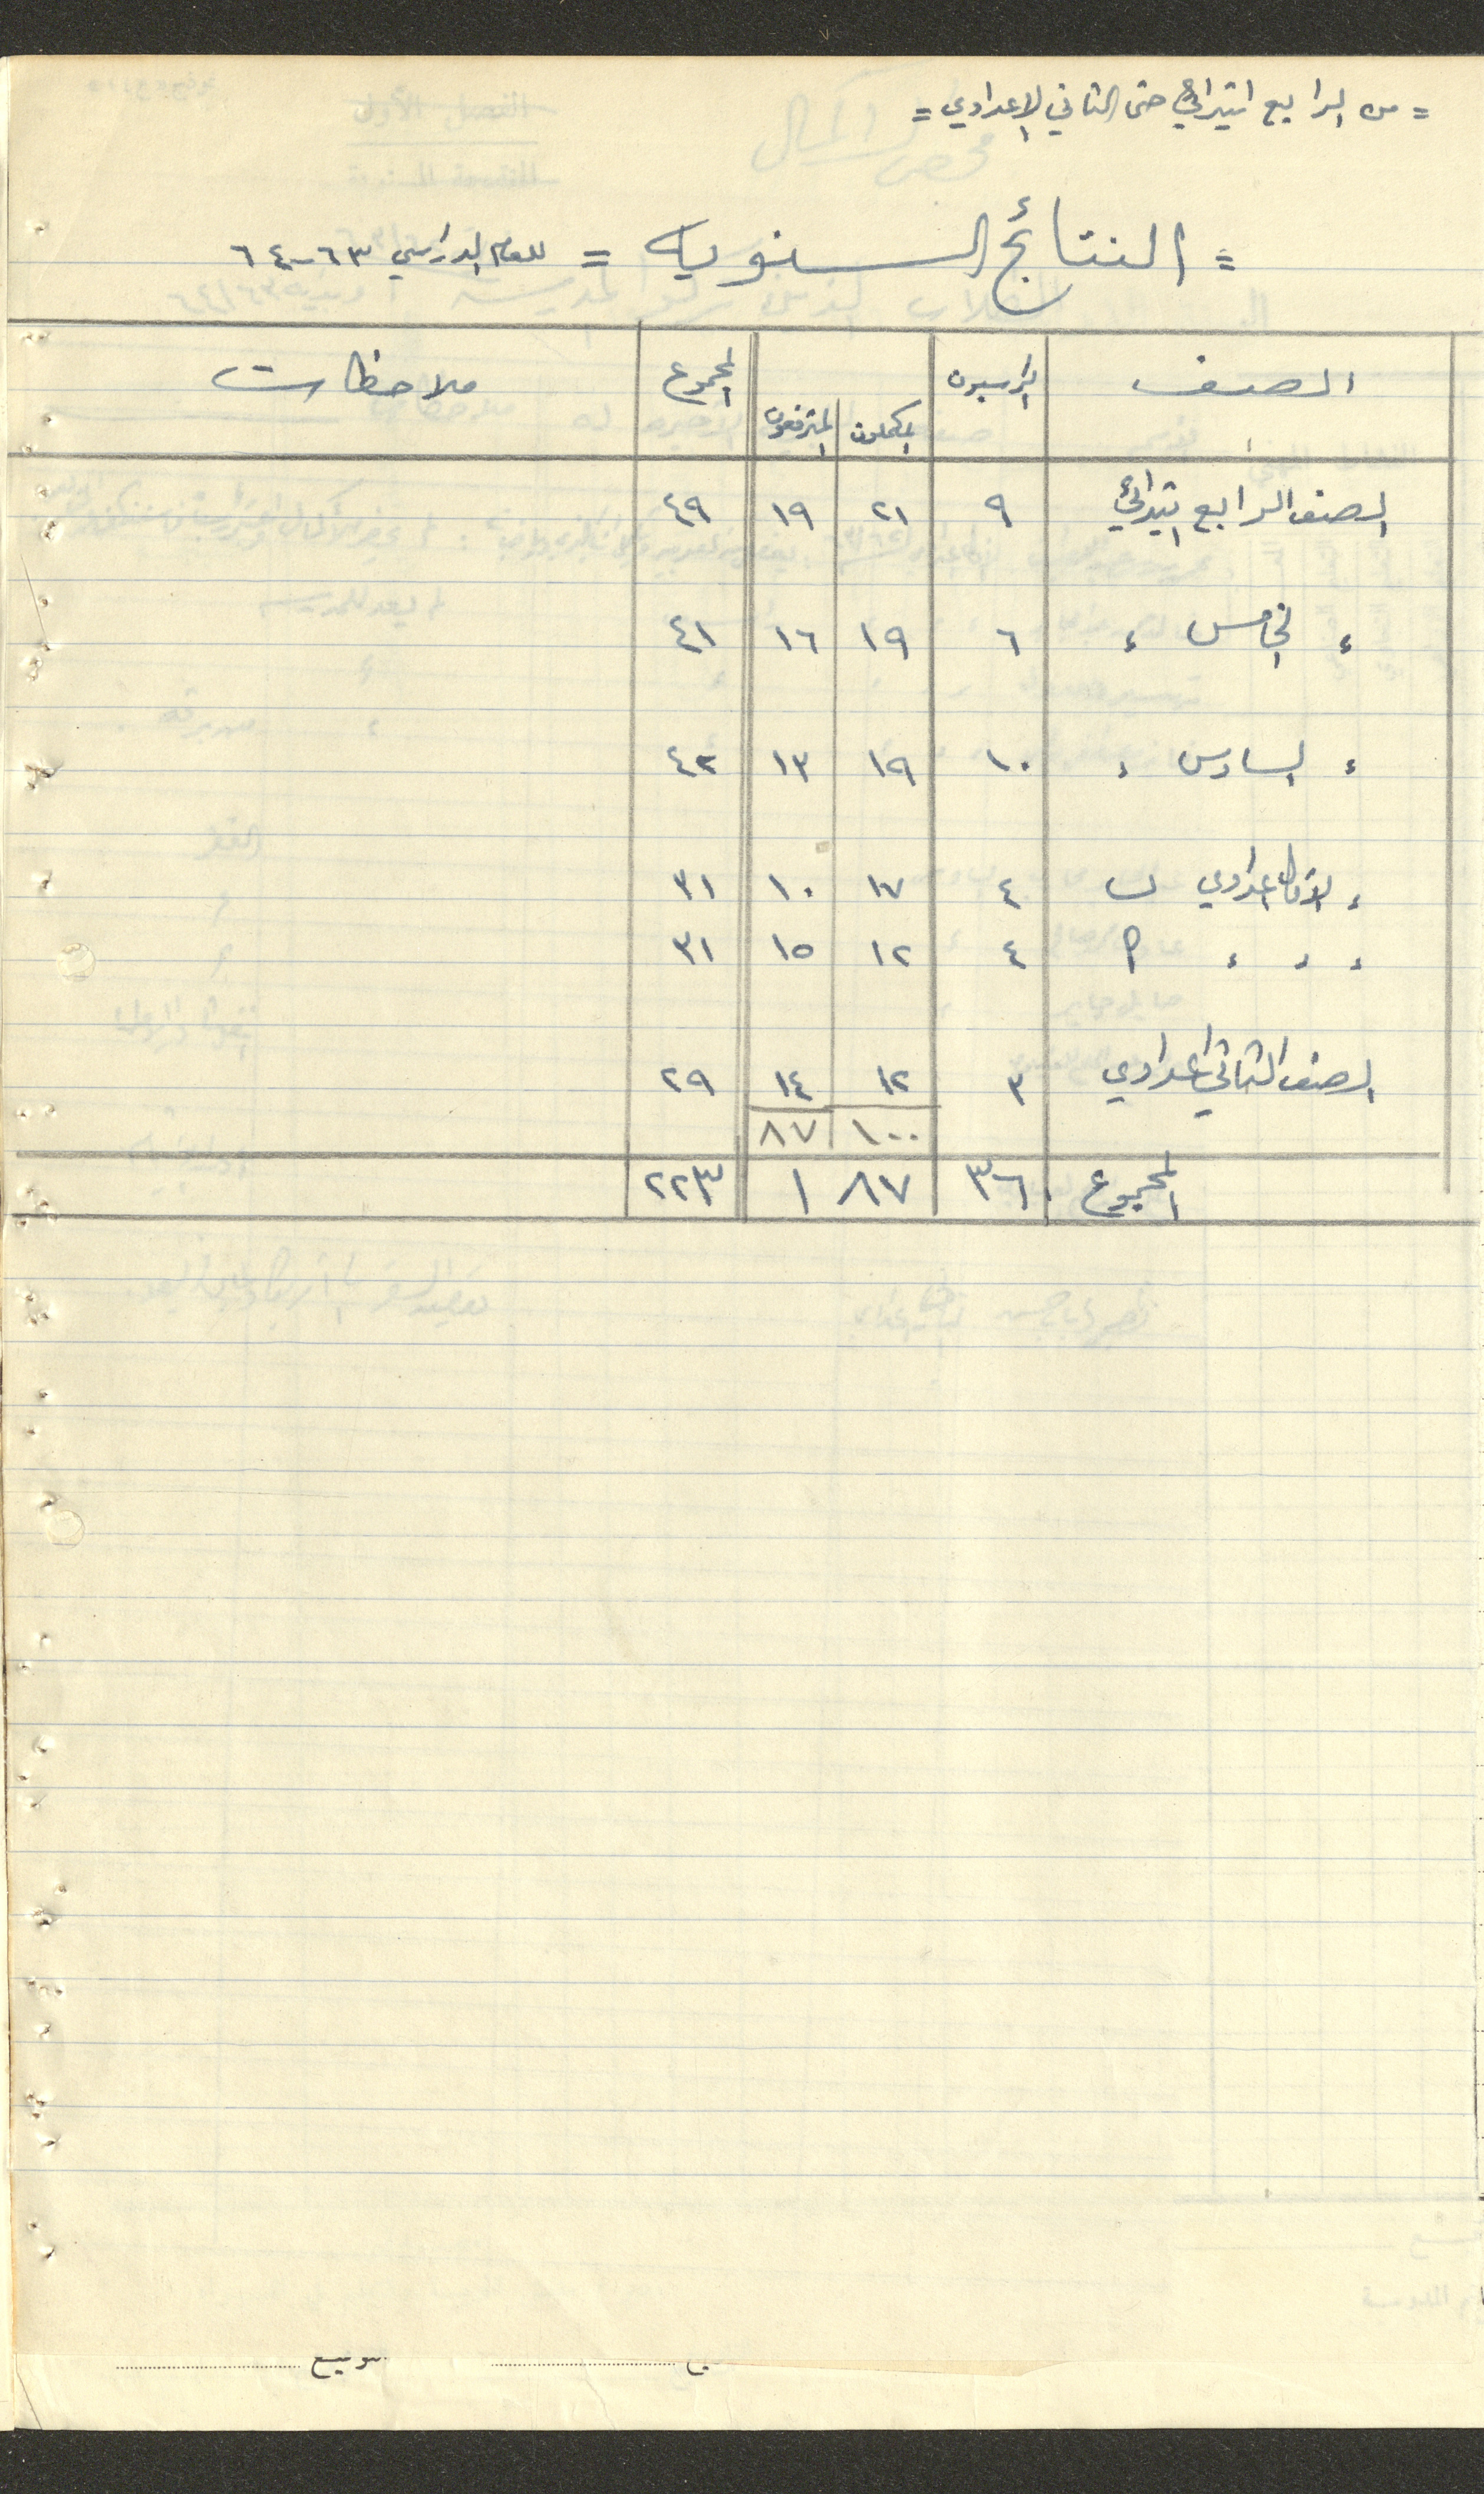 = من الرابع ابتدائي حتى الثاني الاعدادي =
= النتائج السنوية = للعام الدراسي ٦٣-٦٤
الصف الراسبون المكملون المترفعون المجموع ملاحظات
الصف الرابع ابتدائي ٩ ٢١ ١٩ ٤٩
〃 الخامس 〃 ٦ ١٩ ١٦ ٤١
〃 السادس 〃 ١٠ ١٩ ١٣ ٤٢
〃 الاول اعدادي ب ٤ ١٧ ١٠ ٣١
〃 〃 〃 أ ٤ ١٢ ١٥ ٣١
الصف الثاني اعدادي ٣ ١٢ ١٤ ٢٩
١٠٠ ٨٧
المجموع ٣٦ ١٨٧ ٢٢٣
توقيع